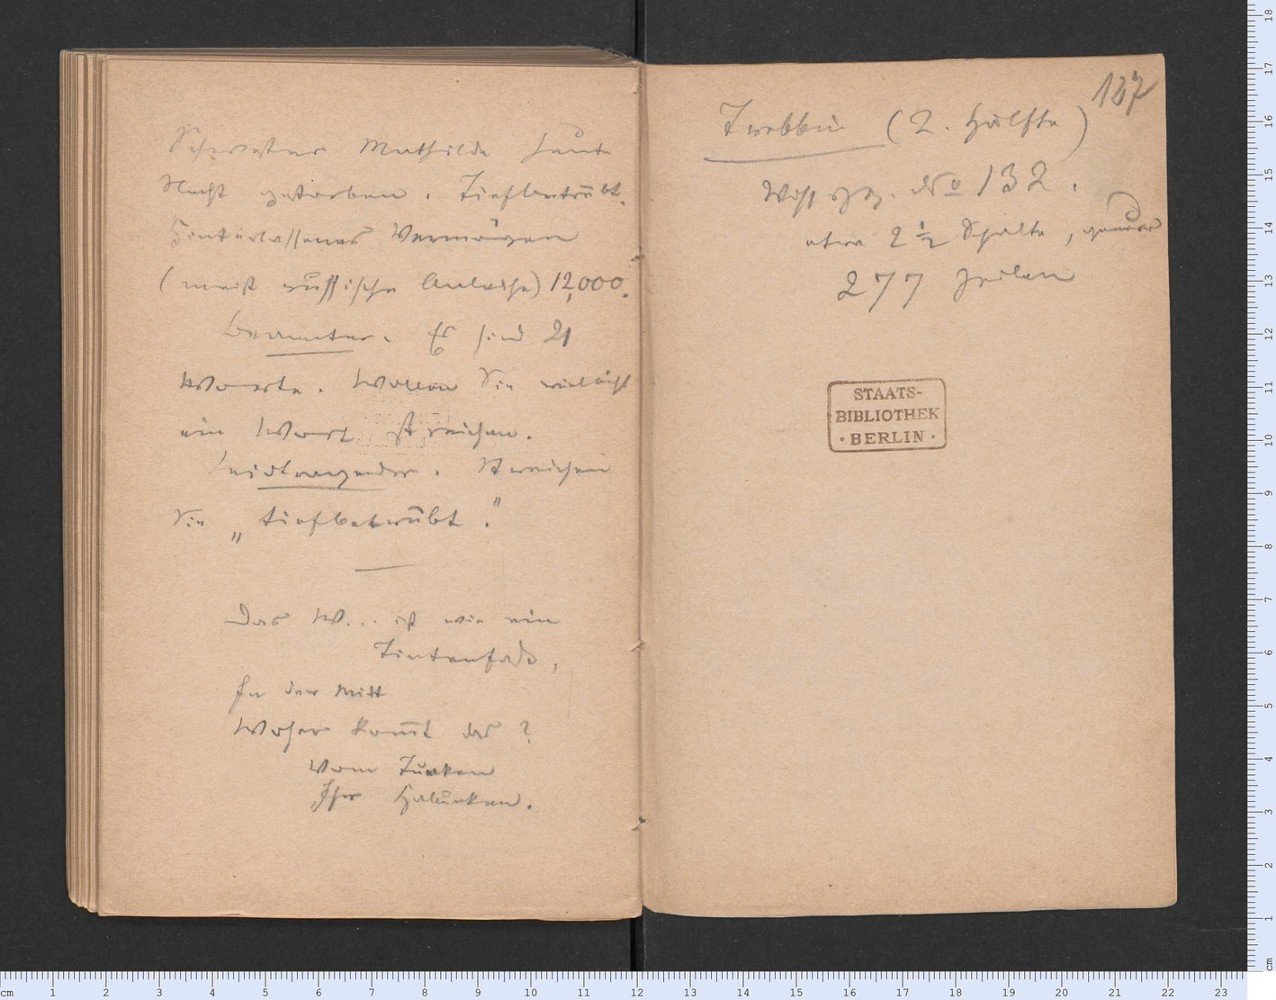 Schwester Mathilde heute
Nacht gestorben. Tiefbetrübt.
Hinterlassenes Vermögen
(meist russische Anleihe) 12,000.
Beamter. Es sind 21
Worte. Wollen Sie vielleicht
ein Wort streichen.
Leidtragender. Streichen
Sie „tiefbetrübt."
Das W... ist wie ein
Tintenfaß,
In der Mitt
Woher kommt das?
Vom Tunken
Ihr Halunken.
127
Trebbin (2. Hälfte)
Voss. Ztg. No 132.
etwa 2 1/2 Spalte, genauer
277 Zeilen
STAATS-
BIBLIOTHEK
· BERLIN ·